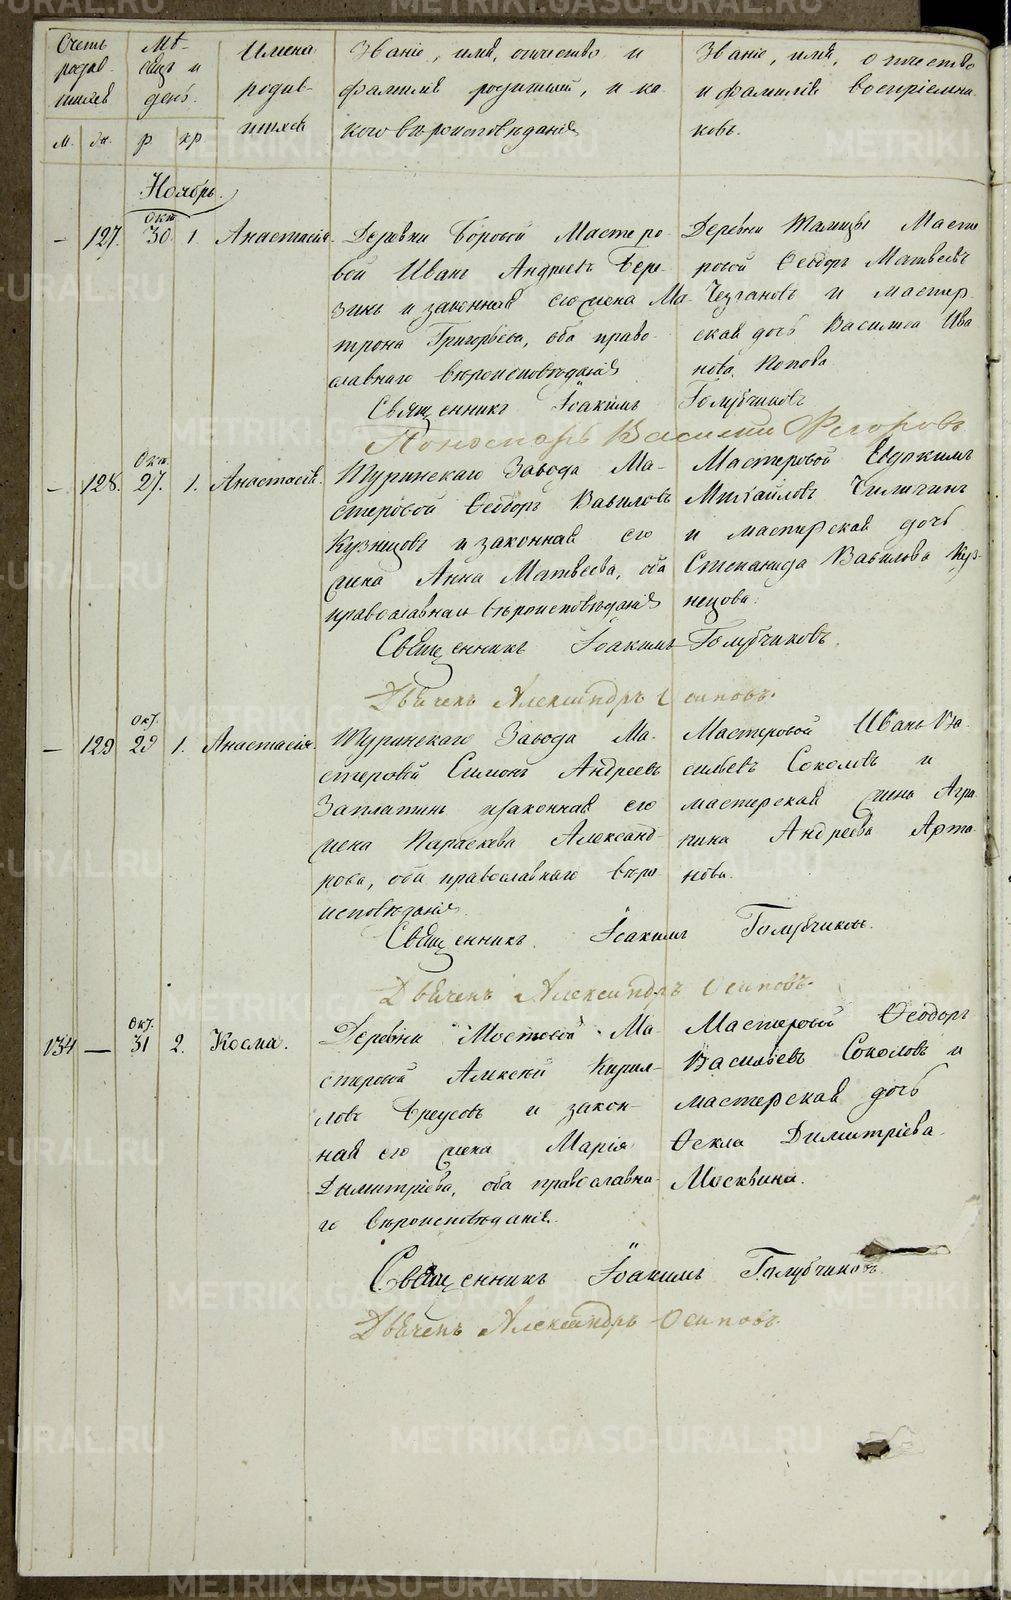 METRIKI.GASO-URAL.RU
Счетъ родив шихся
Мѣ- сяцъ и день.
Имена родив- шихся
Званіе, имя, отчество и фамилія родителей, и ка кого вѣроисповѣданія
Званіе, имя, отчество и фамилія воспріемни ковъ.
м. ж. р. кр.
Ноябрь.
Окт.
– 127. 30. 1. Анастасія.
Деревни Боровой Мастеро-
вой Иванъ Андреевъ Бере-
зинъ и законная его жена Ма
трона Григорьева, оба право-
славнаго вѣроисповѣданія
Деревни Талицы Масте
ровой Ѳеодоръ Матвеевъ
и мастер
ская дочь Василиса Ива
нова Попова
Священникъ Іоакимъ Голубчиковъ
Пономарь Василий Ѳедоровъ
Окт.
– 128. 27. 1. Анастасія.
Туринскаго Завода Ма-
стеровой Ѳеодоръ Вавиловъ
Кузнецовъ и законная его
жена Анна Матвеева, оба
православнаго вѣроисповѣданія
Мастеровой Евдокимъ
Михайловъ Чилигинъ
и мастерская дочь
Степанида Вавилова Куз-
нецова.
Священникъ Іоакимъ Голубчиковъ.
Дьячекъ Александръ Осиповъ.
Окт.
– 129 29 1. Анастасія.
Туринскаго Завода Ма-
стеровой Симонъ Андреевъ
Заплатинъ и законная его
жена Параскева Александ-
рова, оба православнаго вѣро
исповѣданія
Мастеровой Иванъ Ва-
сильевъ Соколовъ и
мастерская жена Агри-
пина Андреева Арта-
нова.
Священникъ Іоакимъ Голубчиковъ.
Дьячекъ Александръ Осиповъ.
Окт.
134 – 31 2. Косма.
Деревни Мостовой Ма-
стеровой Алексѣй Кирил-
ловъ Бреусовъ и закон-
ная его жена Марія
Димитріева, оба православна-
го вѣроисповѣданія.
Мастеровой Ѳеодоръ
Васильевъ Соколовъ и
мастерская дочь
Ѳекла Димитріева
Москвина.
Священникъ Іоакимъ Голубчиковъ.
Дьячекъ Александръ Осиповъ.